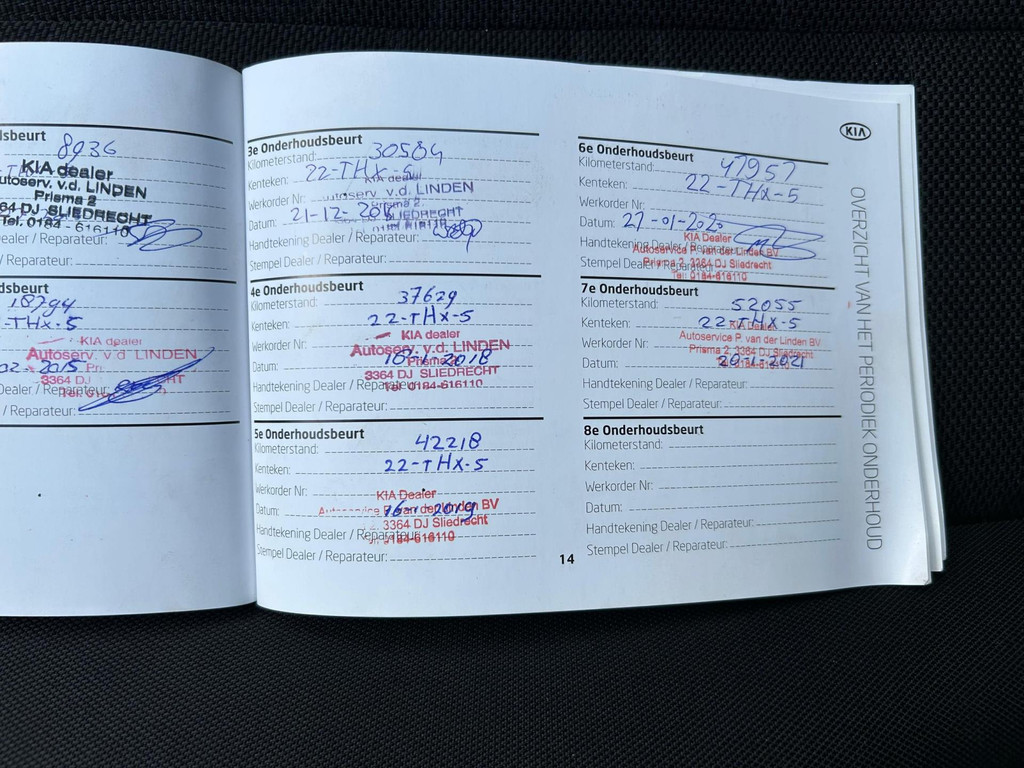 dsbeurt
8936
KIA dealer
utoserv. v.d. LINDEN
Prisma 2
64 DJ SLIEDRECHT
Tel. 0184 - 616110
ealer / Reparateur:
/ Reparateur:
dsbeurt
18794
-THX-5
KIA dealer
Autoserv. v.d. LINDEN
02-2015
3364 DJ
ealer / Reparateur:
/ Reparateur:
3e Onderhoudsbeurt
Kilometerstand: 30584
Kenteken: 22-THX-5
KIA dealer
Werkorder Nr: utoserv. v.d. LINDEN
Prisma 2
Datum: 21-12- SLIEDRECHT
Handtekening Dealer / Reparateur:
Stempel Dealer / Reparateur:
4e Onderhoudsbeurt
Kilometerstand: 37629
Kenteken: 22-THX-5
KIA dealer
Werkorder Nr: Autoserv. v.d. LINDEN
Prisma 2
Datum: 2018
3364 DJ SLIEDRECHT
Handtekening Dealer / Reparateur: Tel. 0184-616110
Stempel Dealer / Reparateur:
5e Onderhoudsbeurt
Kilometerstand: 42218
Kenteken: 22-THX-5
Werkorder Nr:
KIA Dealer
Datum: 16-1-2019
Autoservice P. van der Linden BV
3364 DJ Sliedrecht
Handtekening Dealer / Reparateur: 0184-616110
Stempel Dealer / Reparateur:
6e Onderhoudsbeurt
Kilometerstand: 47957
Kenteken: 22-THX-5
Werkorder Nr:
Datum: 27-01-2020
KIA Dealer
Handtekening Dealer / Reparateur:
Autoservice P. van der Linden BV
Prisma 2, 3364 DJ Sliedrecht
Stempel Dealer / Reparateur:
Tel: 0184-616110
7e Onderhoudsbeurt
Kilometerstand: 52055
Kenteken: 22-THX-5
KIA Dealer
Autoservice P. van der Linden BV
Werkorder Nr:
Prisma 2, 3364 DJ Sliedrecht
Datum: 20-1-2021
0184-616110
Handtekening Dealer / Reparateur:
Stempel Dealer / Reparateur:
8e Onderhoudsbeurt
Kilometerstand:
Kenteken:
Werkorder Nr:
Datum:
Handtekening Dealer / Reparateur:
Stempel Dealer / Reparateur:
14
KIA
OVERZICHT VAN HET PERIODIEK ONDERHOUD